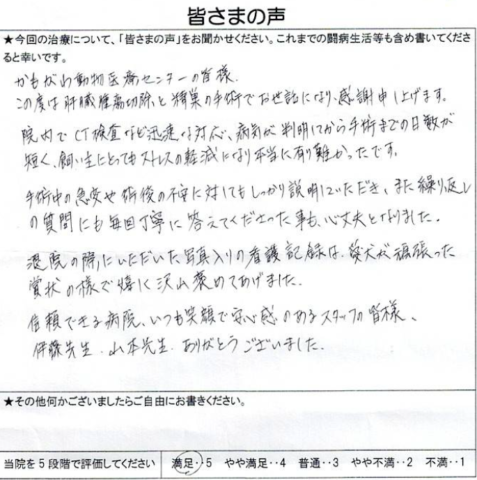 皆さまの声
★今回の治療について、「皆さまの声」をお聞かせください。これまでの闘病生活等も含め書いてくださ
ると幸いです。
かもがわ動物医療センターの皆様
この度は肝臓腫瘍切除と精巣の手術でお世話になり、感謝申し上げます。
院内でCT検査など迅速な対応、病気が判明してから手術までの日数が
短く、飼い主にとってもストレスの軽減になり本当に有り難かったです。
手術中の急変や術後の不安に対してもしっかり説明していただき、また繰り返しの
質問にも毎回丁寧に答えてくださった事も、心丈夫となりました。
退院の際にいただいた写真入りの看護記録は、愛犬が頑張った
賞状の様で嬉しく沢山褒めてあげました。
信頼できる病院、いつも笑顔で安心感のあるスタッフの皆様、
伊藤先生、山本先生、ありがとうございました。
★その他何かございましたらご自由にお書きください。
当院を5段階で評価してください 満足‥5 やや満足‥4 普通‥3 やや不満‥2 不満‥1